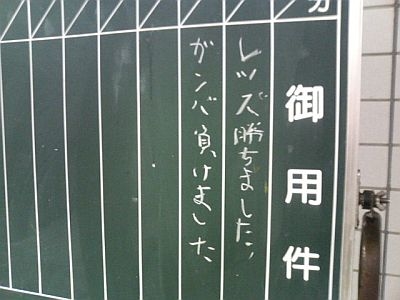 分
御用件
レッズ勝ちました!
ガンバ負けました